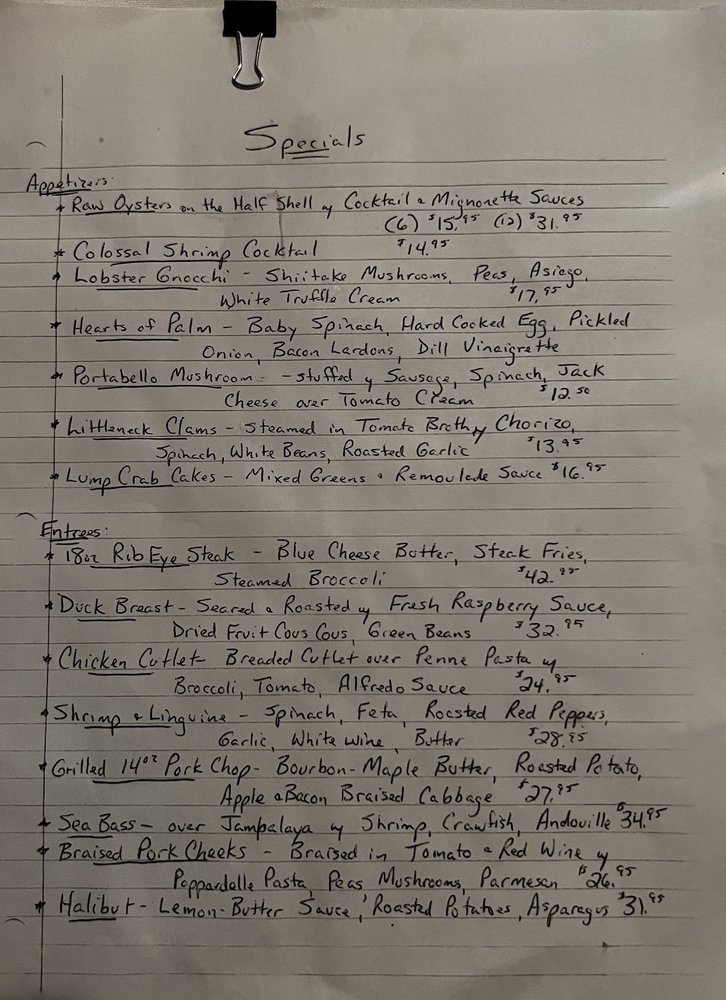 Specials
Appetizers:
* Raw Oysters on the Half Shell w/ Cocktail & Mignonette Sauces
(6) $15.95 (12) $31.95
* Colossal Shrimp Cocktail $14.95
* Lobster Gnocchi - Shiitake Mushrooms, Peas, Asiago,
White Truffle Cream $17.95
* Hearts of Palm - Baby Spinach, Hard Cooked Egg, Pickled
Onion, Bacon Lardons, Dill Vinaigrette
* Portabello Mushroom - stuffed w/ Sausage, Spinach, Jack
Cheese over Tomato Cream $12.50
* Littleneck Clams - Steamed in Tomato Broth w/ Chorizo,
Spinach, White Beans, Roasted Garlic $13.95
* Lump Crab Cakes - Mixed Greens & Remoulade Sauce $16.95
Entrees:
* 18oz Rib Eye Steak - Blue Cheese Butter, Steak Fries,
Steamed Broccoli $42.95
* Duck Breast - Seared & Roasted w/ Fresh Raspberry Sauce,
Dried Fruit Cous Cous, Green Beans $32.95
* Chicken Cutlet - Breaded Cutlet over Penne Pasta w/
Broccoli, Tomato, Alfredo Sauce $24.95
* Shrimp & Linguine - Spinach, Feta, Roasted Red Peppers,
Garlic, White Wine, Butter $28.95
* Grilled 14oz Pork Chop - Bourbon-Maple Butter, Roasted Potato,
Apple & Bacon Braised Cabbage $27.95
* Sea Bass - over Jambalaya w/ Shrimp, Crawfish, Andouille $34.95
* Braised Pork Cheeks - Braised in Tomato & Red Wine w/
Pappardelle Pasta, Peas Mushrooms, Parmesan $26.95
* Halibut - Lemon-Butter Sauce, Roasted Potatoes, Asparagus $31.95